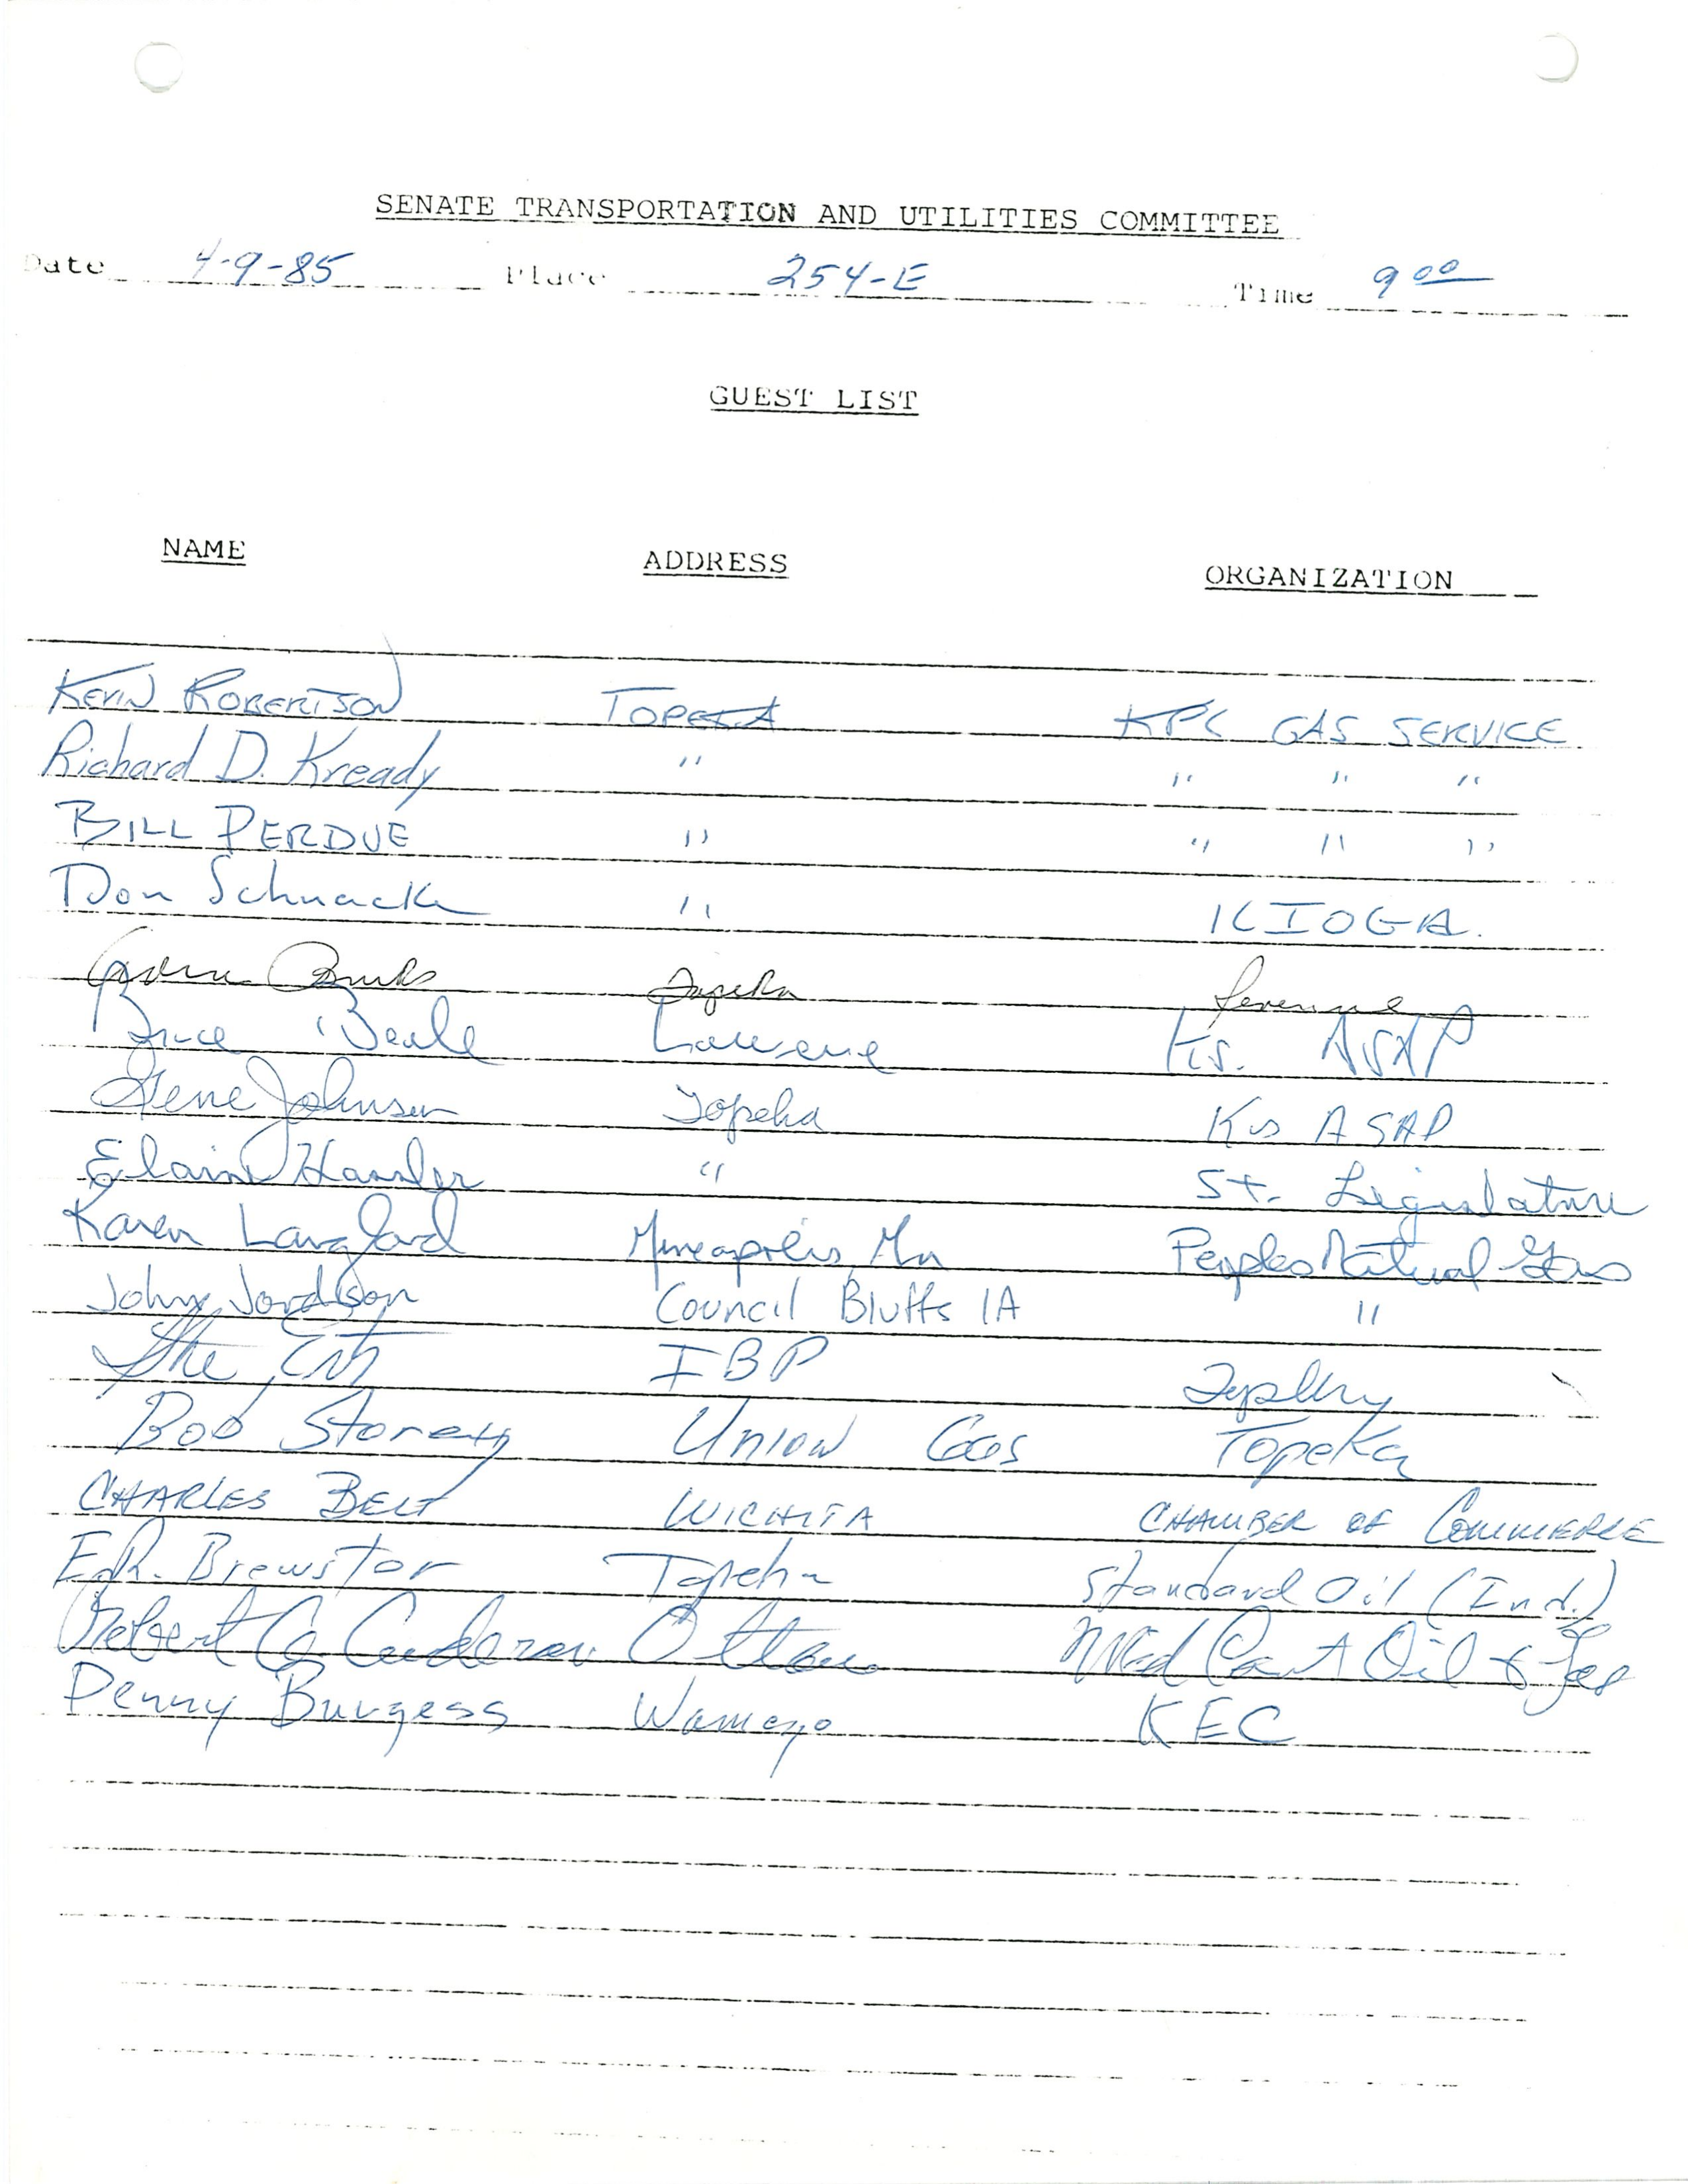 SENATE TRANSPORTATION AND UTILITIES COMMITTEE
Date 4-9-85 Place 254-E Time 9 00
GUEST LIST
NAME ADDRESS ORGANIZATION
KEVIN ROBERTSON TOPEKA KPL GAS SERVICE
Richard D. Kready " " " "
BILL PERDUE " " " "
Don Schnacke " KIOGA.
Topeka Revenue
Bruce Beale Lawrence Ks. ASAP
Gene Johnson Topeka Ks ASAP
Elaine Hassler " St. Legislature
Karen Langland Mineapolis, Mn Peoples Natural Gas
John Jordison Council Bluffs IA "
IBP
Bob Storey Union Gas Topeka
CHARLES BELT WICHITA CHAMBER OF COMMERCE
E.R. Brewster Topeka Standard Oil (Ind.)
Robert C. Anderson Ottawa Mid Cont Oil & Gas
Penny Burgess Wamego KEC